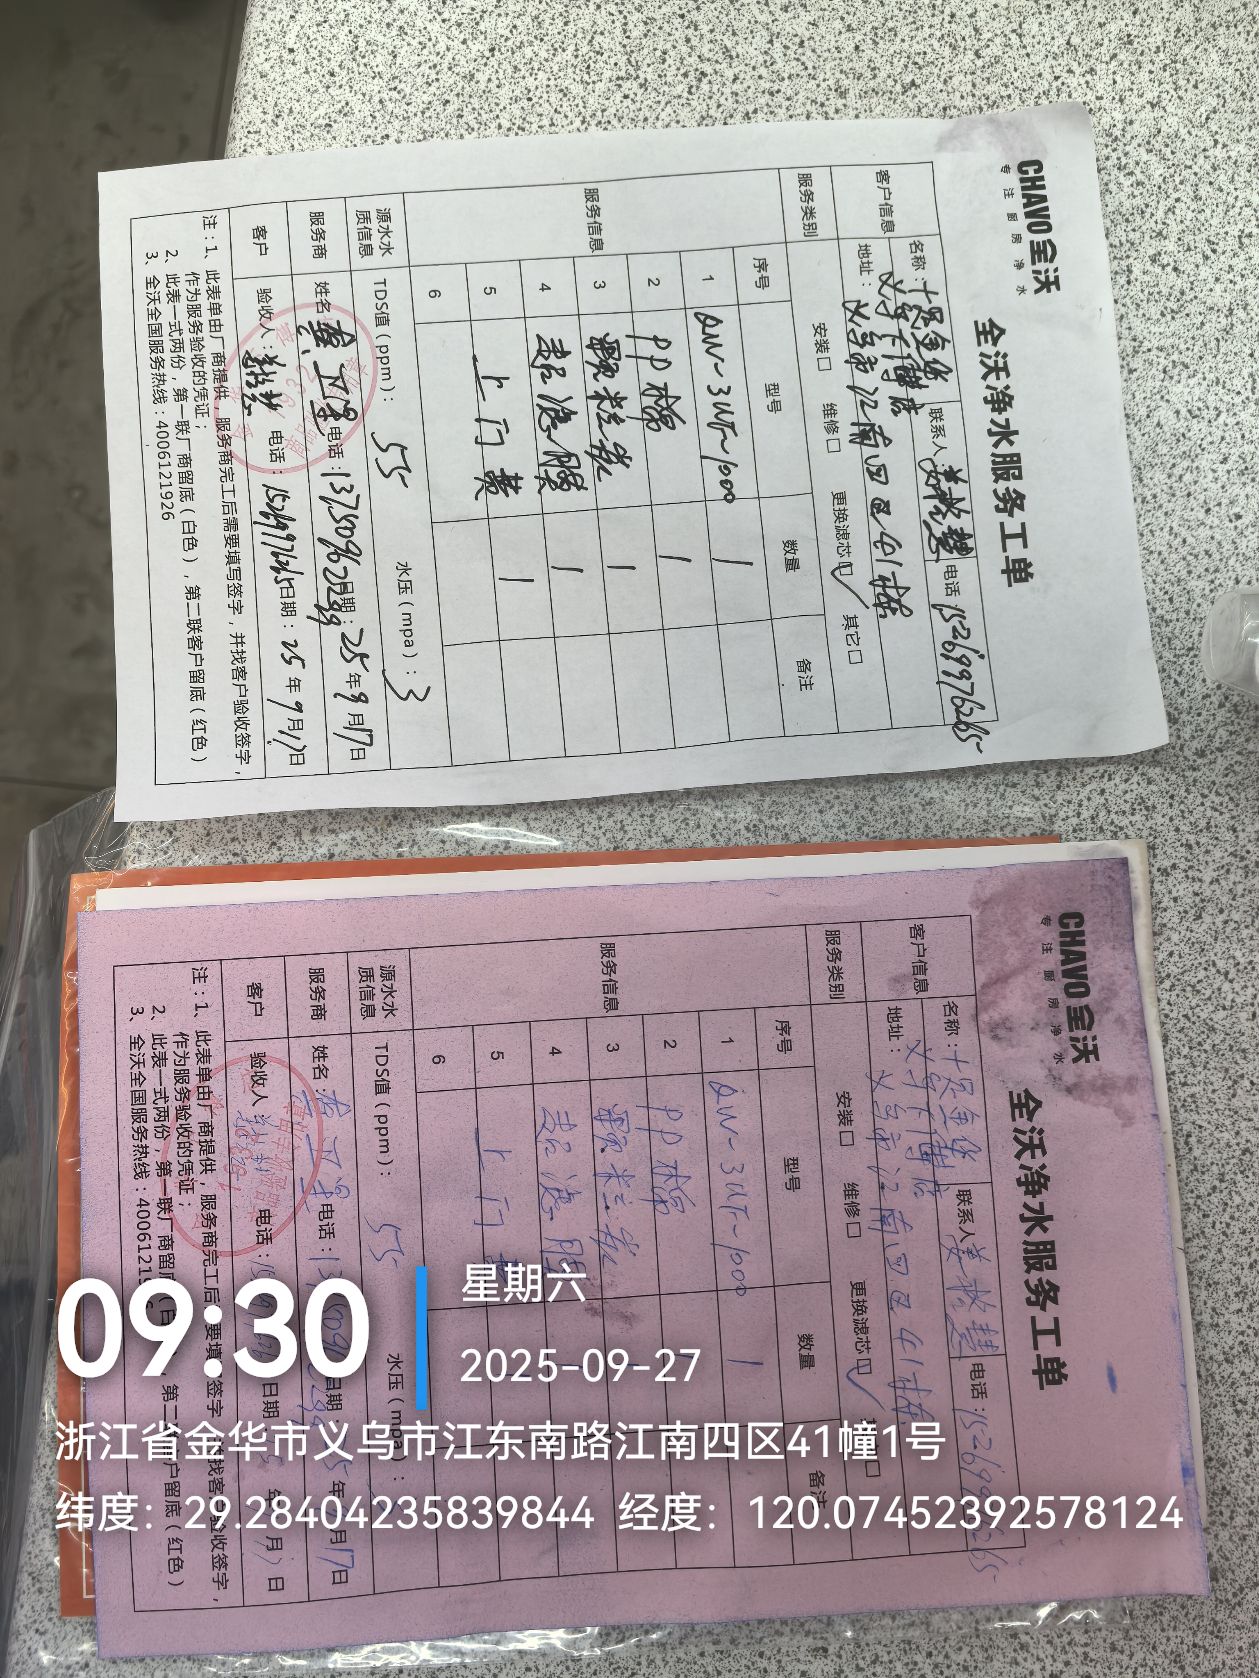 CHAVO 全沃
专注厨房净水
全沃净水服务工单
客户信息
名称：十足金华
义乌下傅店
联系人
电话：15269976265
地址：义乌市江南四区41栋
服务类别
安装□ 维修□ 更换滤芯☑ 其它□
服务信息
序号 型号 数量 备注
1 QW-3WF-1000 1
2 PP棉 1
3 颗粒炭 1
4 超滤膜 1
5 上门费 1
6
源水水质信息
TDS值（ppm）：55 水压（mpa）：3
服务商
姓名： 电话：13750962399 日期：25年9月17日
客户
验收人： 电话：15269976265 日期：25年9月17日
注：1、此表单由厂商提供，服务商完工后需要填写签字，并找客户验收签字，
作为服务验收的凭证；
2、此表一式两份，第一联厂商留底（白色），第二联客户留底（红色）
3、全沃全国服务热线：4006121926
CHAVO 全沃
专注厨房净水
全沃净水服务工单
客户信息
名称：十足金华
义乌下傅店
联系人
电话：15269976265
地址：义乌市江南四区41栋
服务类别
安装□ 维修□ 更换滤芯☑
服务信息
序号 型号 数量 备注
1 QW-3WF-1000 1
2 PP棉
3 颗粒炭
4 超滤膜
5 上门
6
源水水质信息
TDS值（ppm）：55 水压（mpa）：
服务商
姓名： 电话： 日期： 年 月17日
客户
验收人： 电话： 日期： 年 月17日
注：1、此表单由厂商提供，服务商完工后需要填写签字，并找客户验收签字，
作为服务验收的凭证；
2、此表一式两份，第一联厂商留底（白色），第二联客户留底（红色）
3、全沃全国服务热线：400612
09:30
星期六
2025-09-27
浙江省金华市义乌市江东南路江南四区41幢1号
纬度：29.28404235839844 经度：120.07452392578124